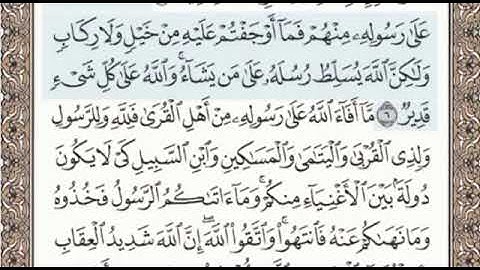 عَلَىٰ رَسُولِهِۦ مِنۡهُمۡ فَمَآ أَوۡجَفۡتُمۡ عَلَيۡهِ مِنۡ خَيۡلٖ وَلَا رِكَابٖ
وَلَٰكِنَّ ٱللَّهَ يُسَلِّطُ رُسُلَهُۥ عَلَىٰ مَن يَشَآءُۚ وَٱللَّهُ عَلَىٰ كُلِّ شَيۡءٖ
قَدِيرٞ ٦ مَّآ أَفَآءَ ٱللَّهُ عَلَىٰ رَسُولِهِۦ مِنۡ أَهۡلِ ٱلۡقُرَىٰ فَلِلَّهِ وَلِلرَّسُولِ
وَلِذِي ٱلۡقُرۡبَىٰ وَٱلۡيَتَٰمَىٰ وَٱلۡمَسَٰكِينِ وَٱبۡنِ ٱلسَّبِيلِ كَيۡ لَا يَكُونَ
دُولَةَۢ بَيۡنَ ٱلۡأَغۡنِيَآءِ مِنكُمۡۚ وَمَآ ءَاتَىٰكُمُ ٱلرَّسُولُ فَخُذُوهُ
وَمَا نَهَىٰكُمۡ عَنۡهُ فَٱنتَهُواْۚ وَٱتَّقُواْ ٱللَّهَۖ إِنَّ ٱللَّهَ شَدِيدُ ٱلۡعِقَابِ